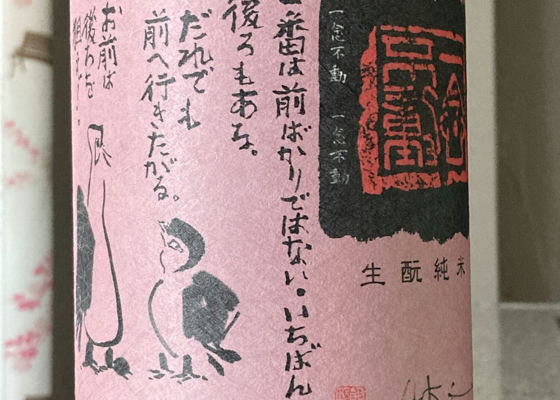 一念不動 一念不動
一念不動
生酛純米
一番は前ばかりではない。いちばん
後ろもある。
だれでも
前へ行きたがる。
お前は
後ろを